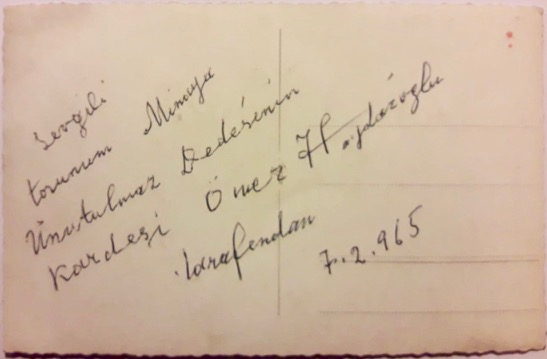 Sevgili
torunum Minaya
Unutulmaz Dedesinin
Kardeşi Ömer Hajdaroglu
tarafendan
7.2.965